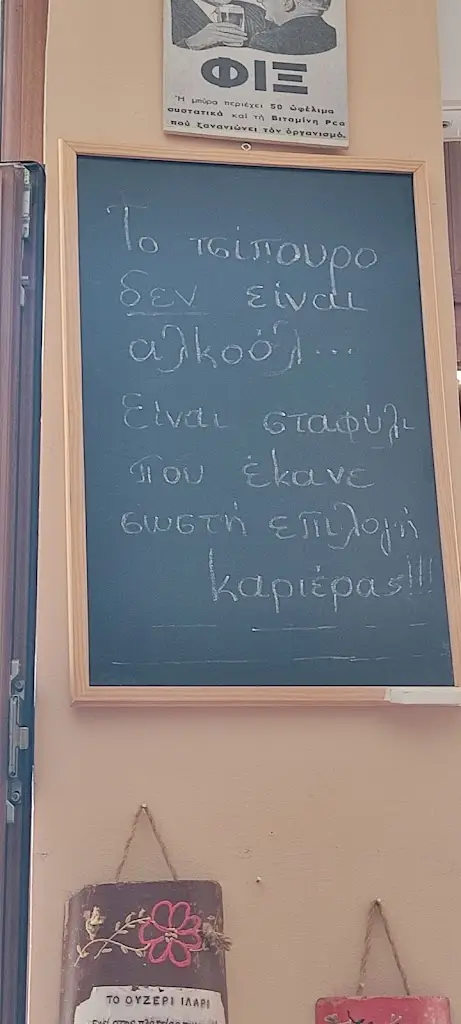 ΦΙΞ
Ἡ μπύρα περιέχει 50 ὠφέλιμα
συστατικὰ καὶ τὴ Βιταμίνη Pca
ποὺ ξανανιώνει τὸν ὀργανισμό.
Το τσίπουρο
δεν είναι
αλκοόλ...
Είναι σταφύλι
που έκανε
σωστή επιλογή
καριέρας!!!
ΤΟ ΟΥΖΕΡΙ ΙΛΑΡΙ